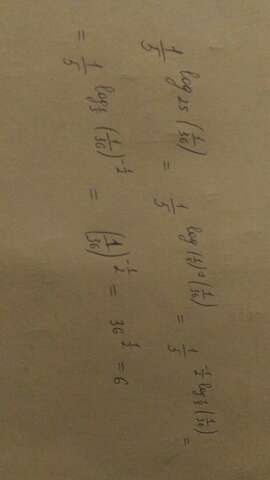 1/5^log₂₅(1/36) = 1/5^log₍₁/₅₎⁻²(1/36) = 1/5^-1/2 log₁/₅(1/36) =
= 1/5^log₁/₅(1/36)^-1/2 = (1/36)^-1/2 = 36^1/2 = 6